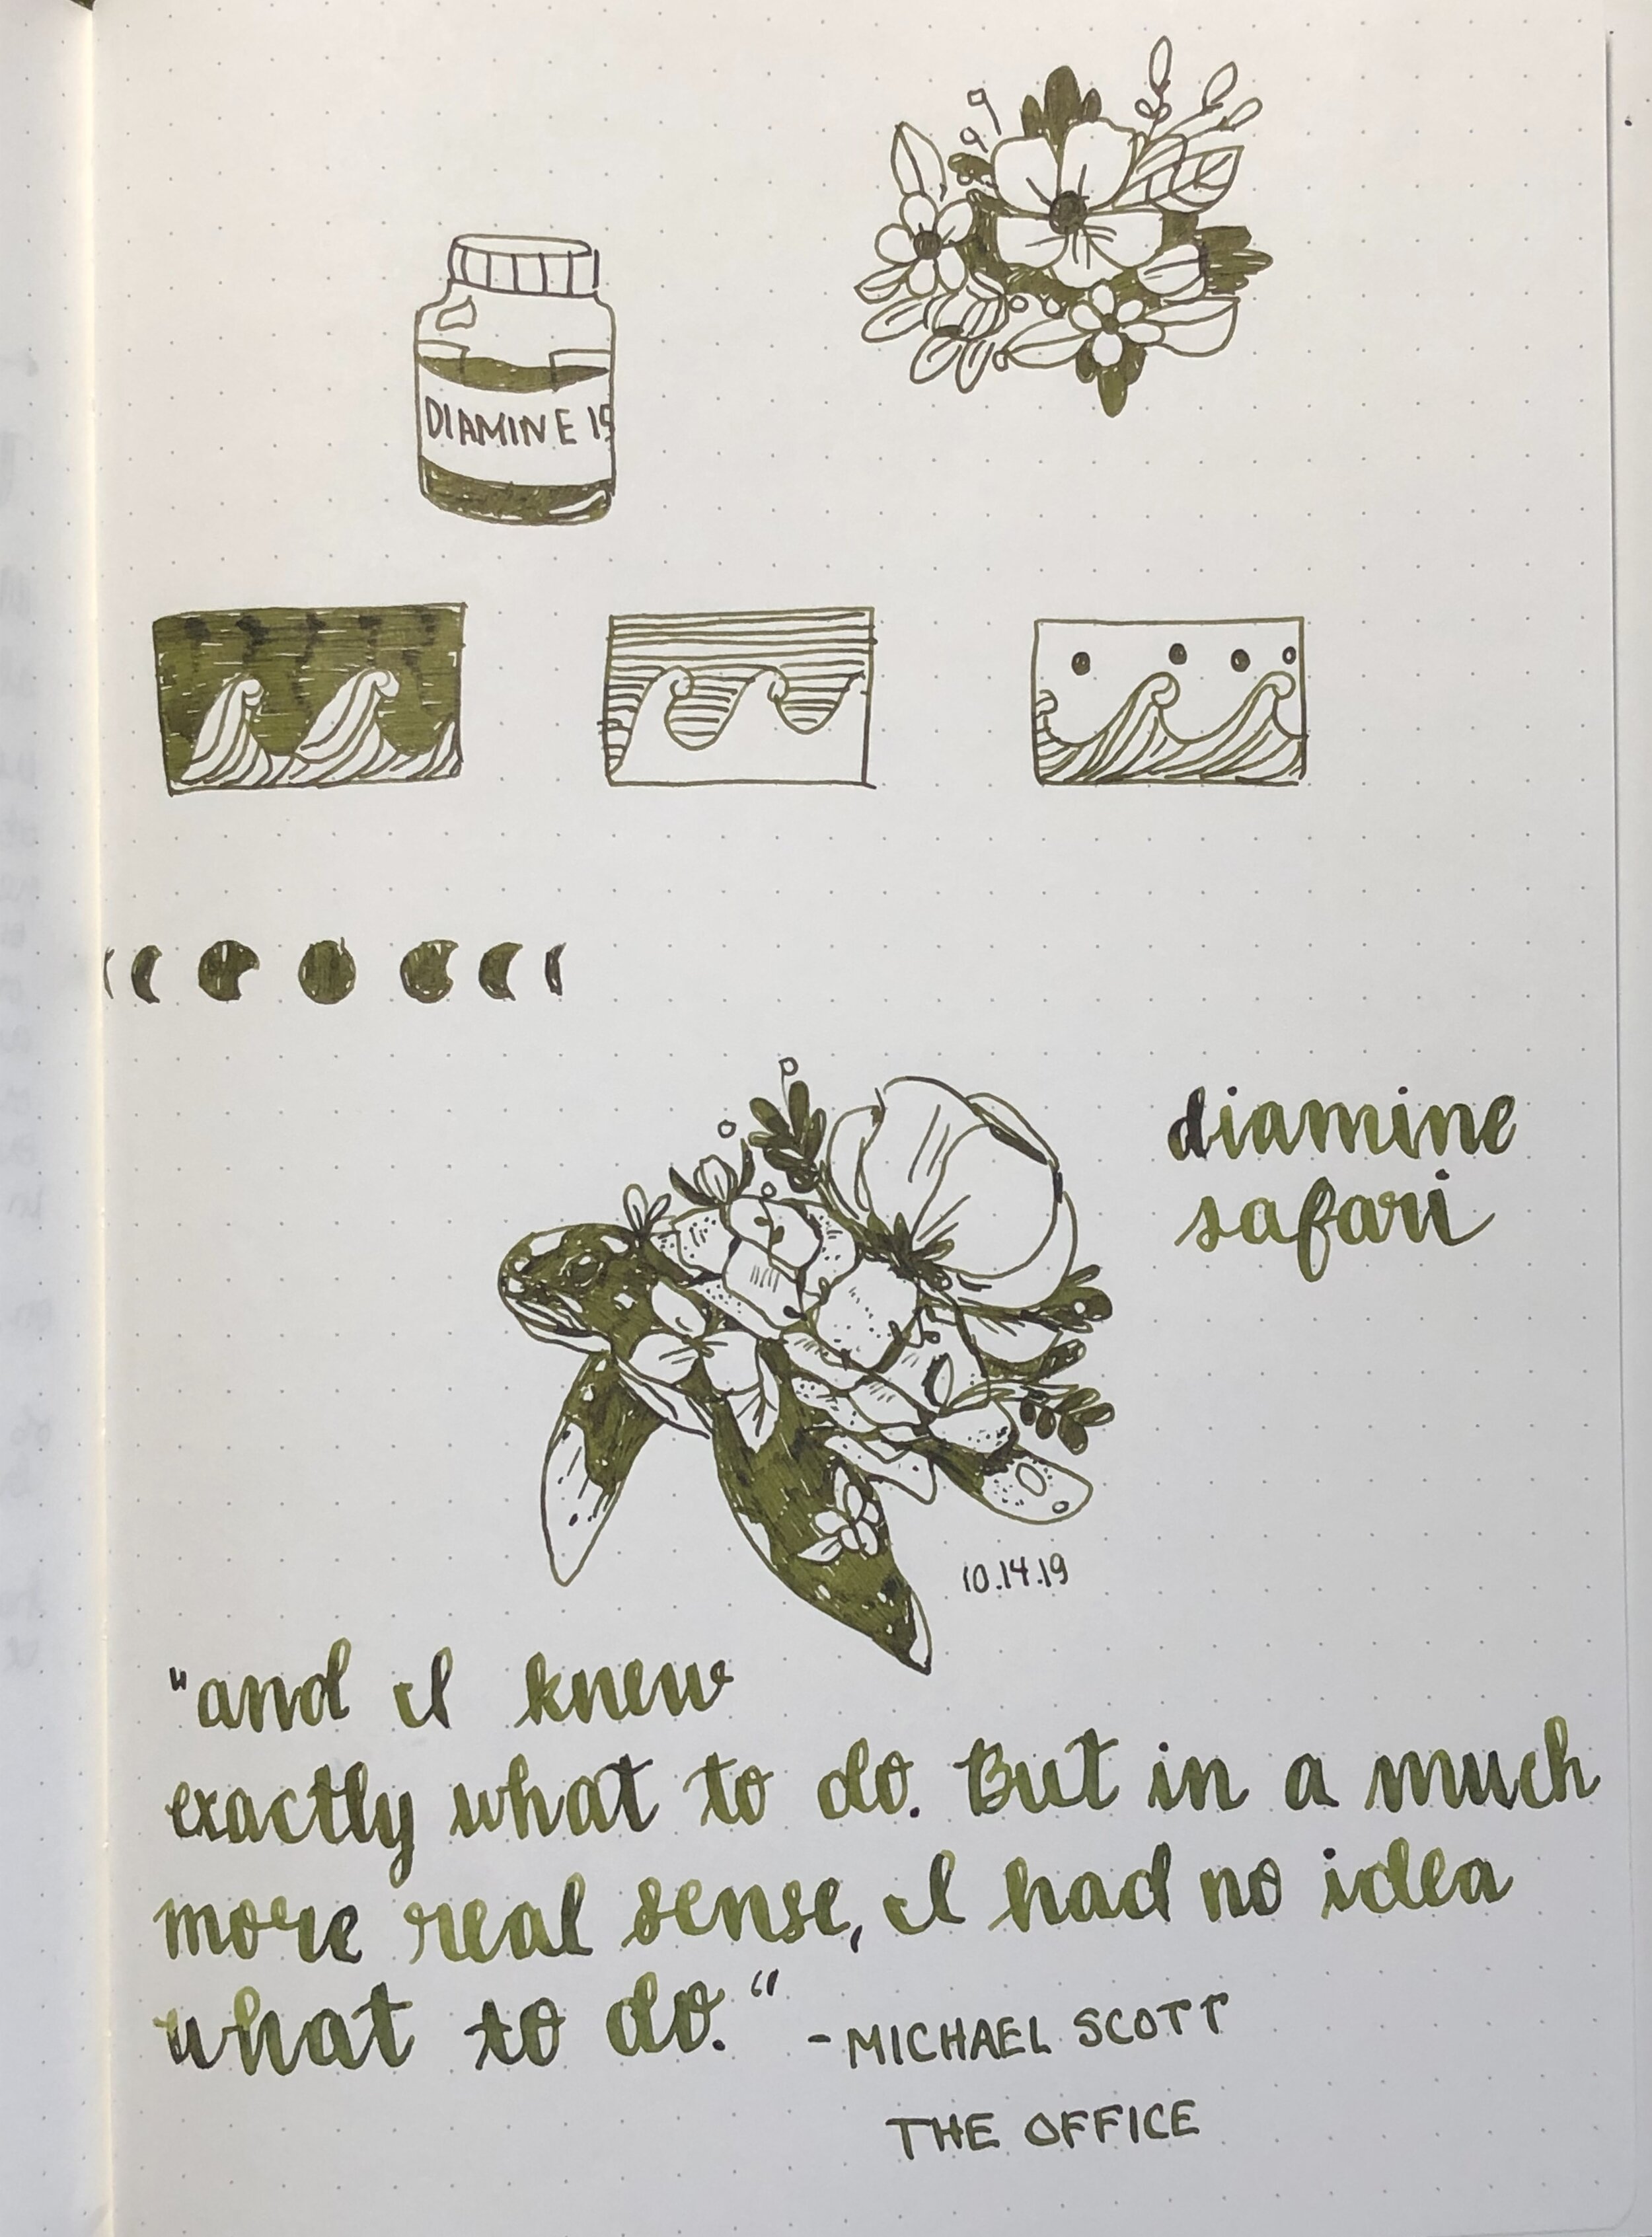 DIAMINE 15
diamine
safari
10.14.19
"and I knew
exactly what to do. But in a much
more real sense, I had no idea
what to do."
-MICHAEL SCOTT
THE OFFICE